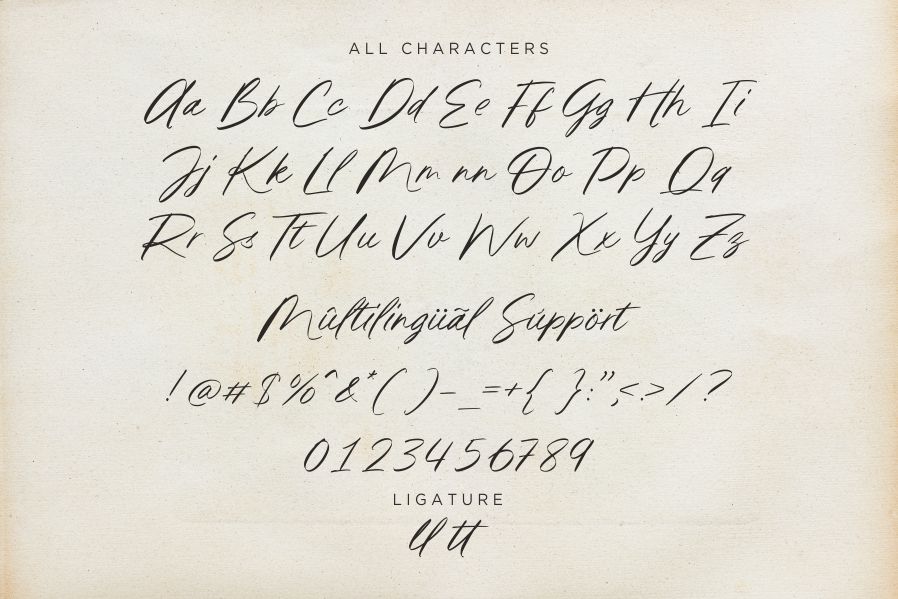 ALL CHARACTERS
Aa Bb Cc Dd Ee Ff Gg Hh Ii
Jj Kk Ll Mm nn Oo Pp Qq
Rr Ss Tt Uu Vv Ww Xx Yy Zz
Mûltilingüãl Súppört
!@#$%^&*()-_=+{ }:”;<.>/?
0123456789
LIGATURE
ll tt